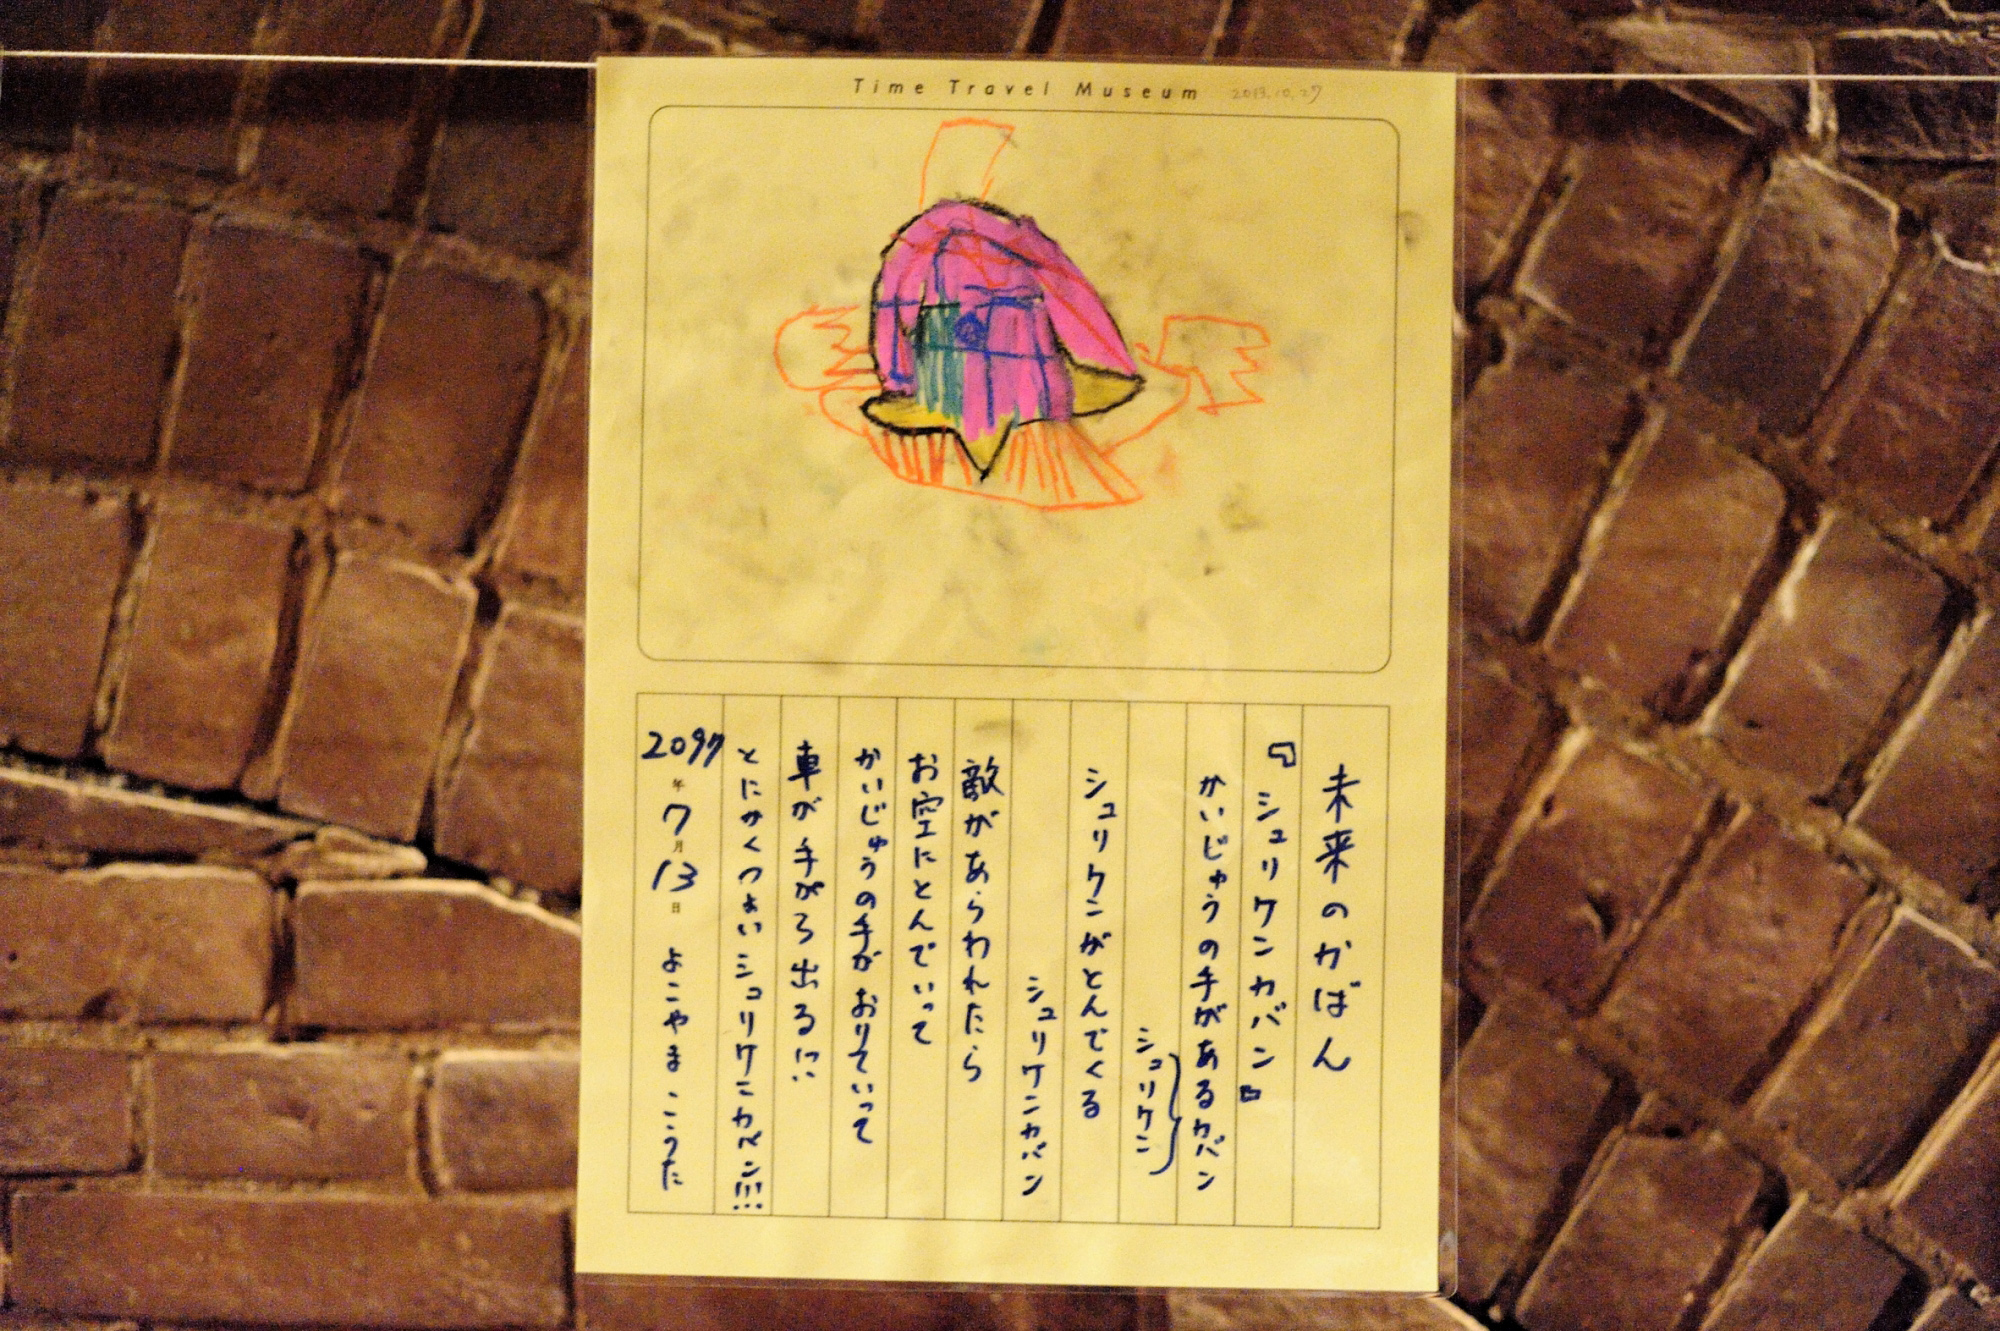 Time Travel Museum 2013.10.27
未来のかばん
『シュリケンカバン』
かいじゅうの手があるカバン
シュリケン
シュリケンがとんでくる
シュリケンカバン
敵があらわれたら
お空にとんでいって
かいじゅうの手がおりていって
車が手がろ出る!!
とにかくつよいシュリケンカバン!!!
2097年7月13日 よこやま こうた